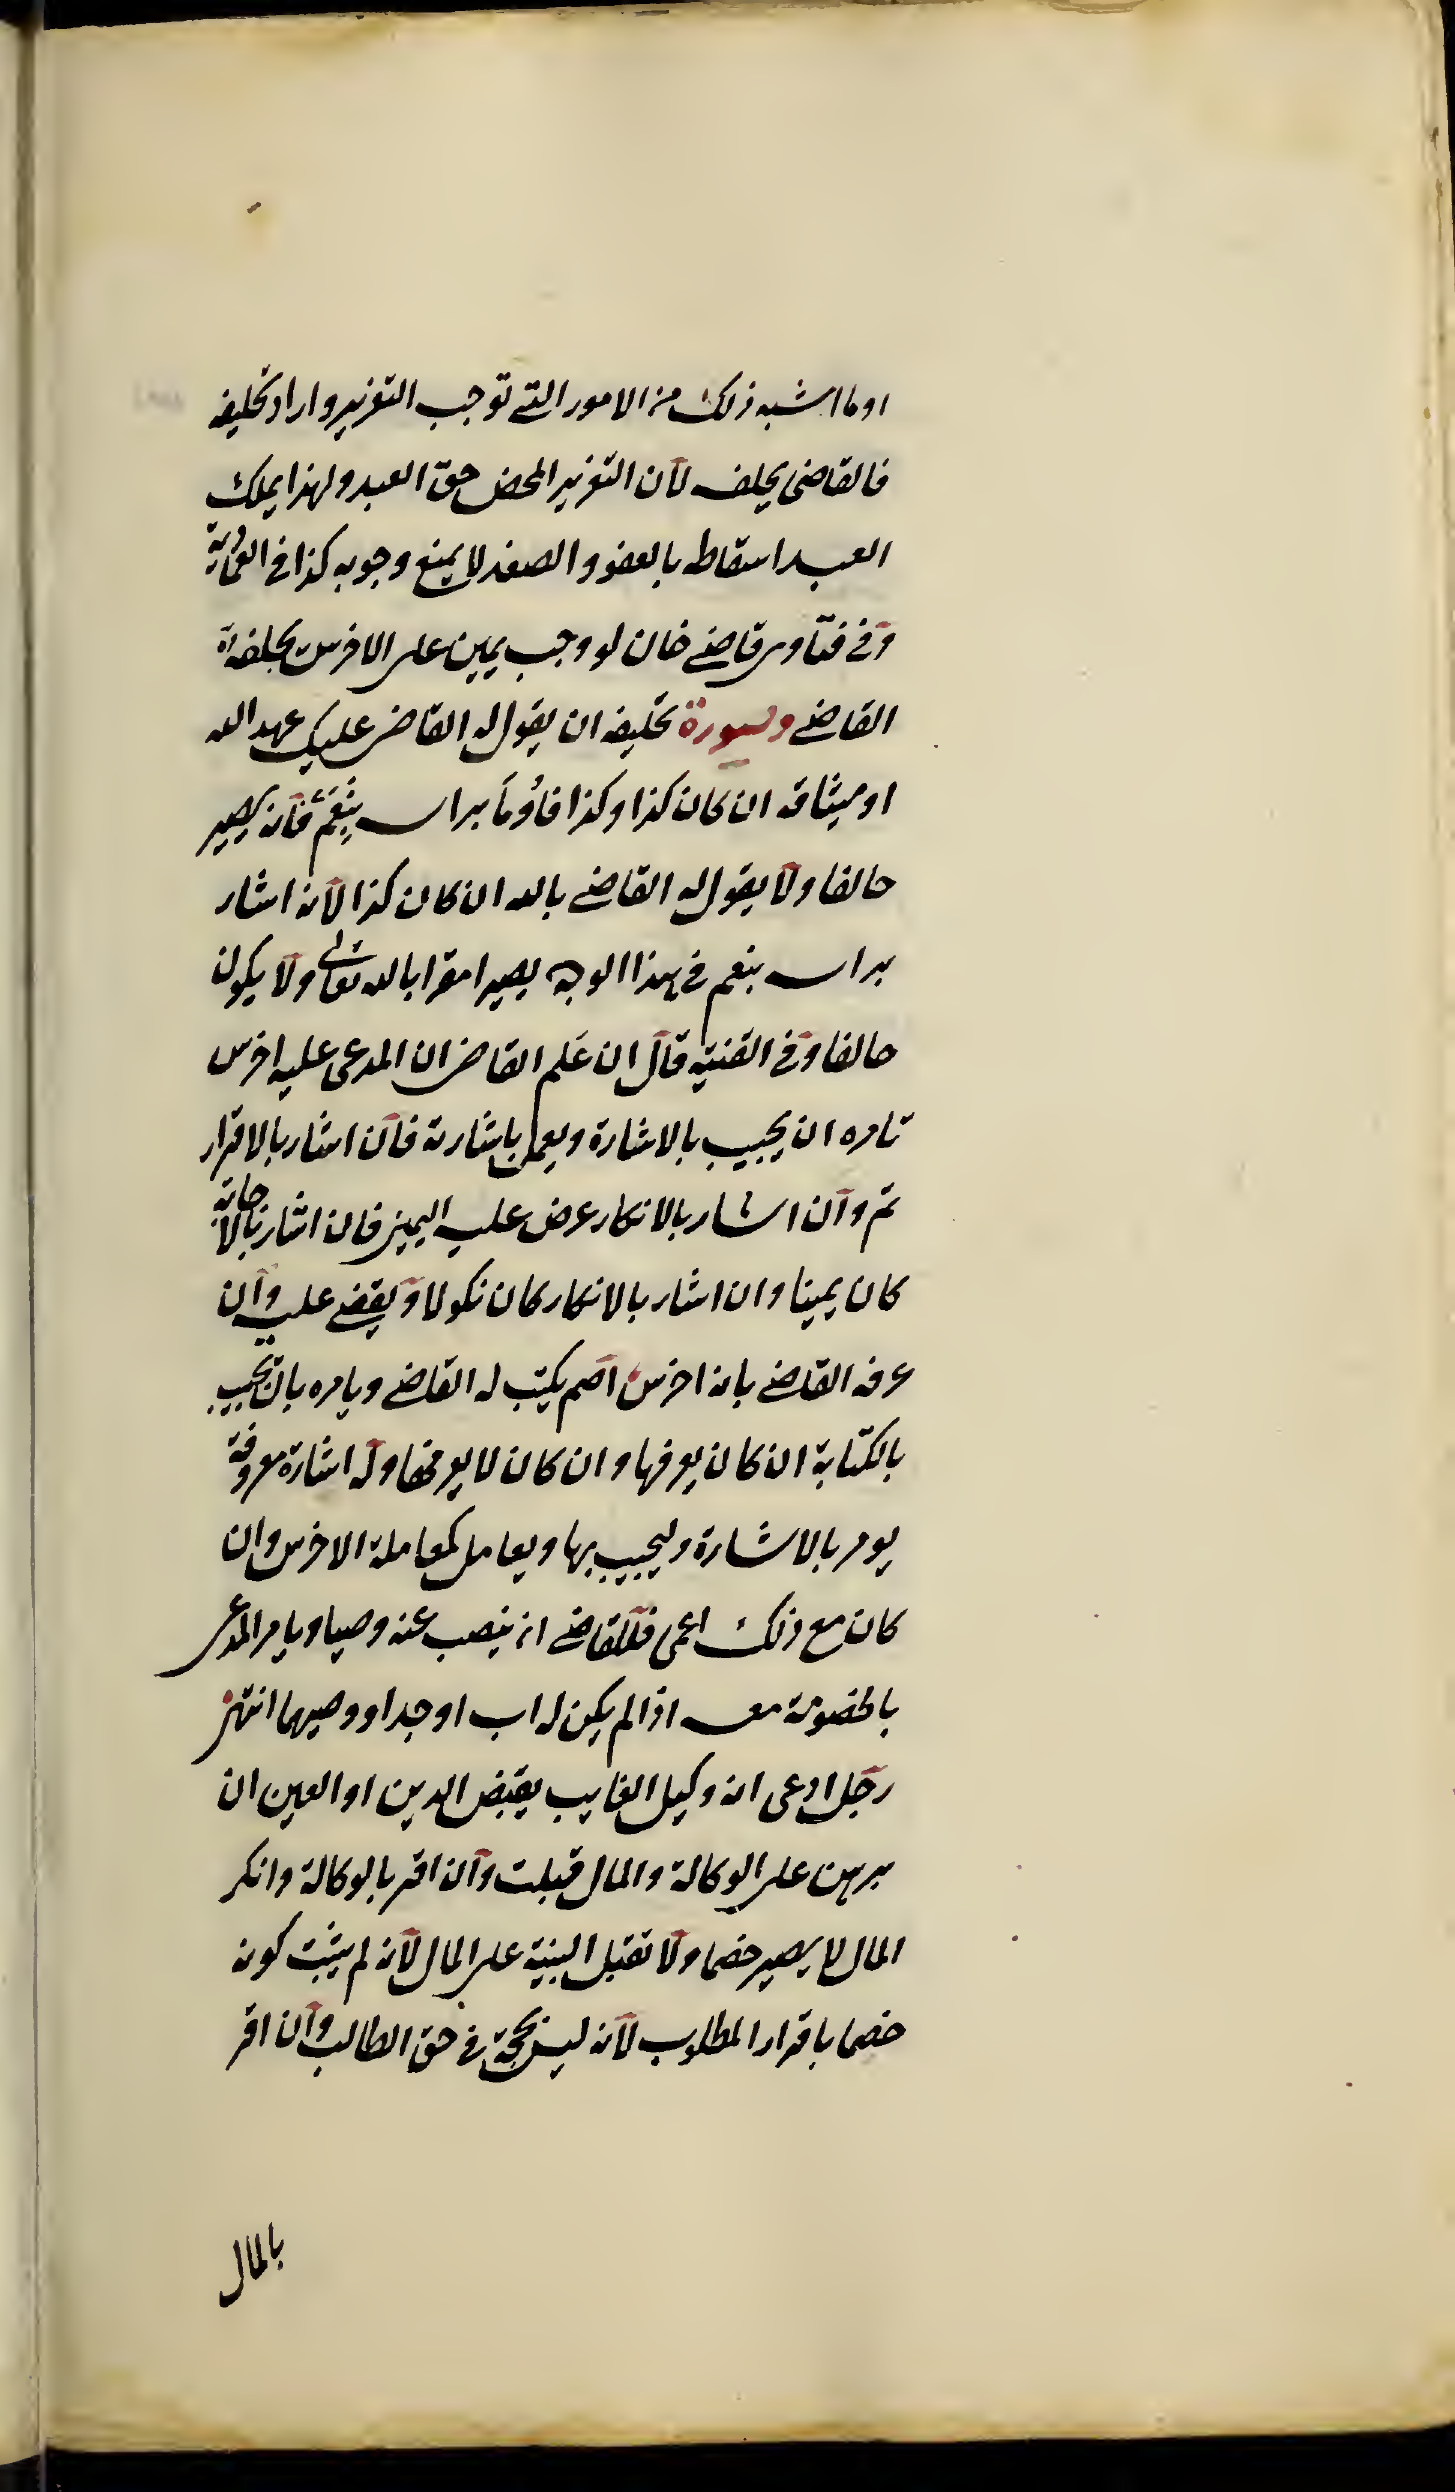 او ما اشبه ذلك من الامور التي توجب التعزير واراد تحليفه
فالقاضى يحلف لان التعزير المحض حق العبد ولهذا يملك
العبد اسقاطه بالعفو والصغر لا يمنع وجوبه كذا في
وفي فتاوى قاضي خان لو وجب يمين على الاخرس يحلفه
القاضي وصورة تحليفه ان يقول له القاضى عليك عهد الله
او ميثاقه ان كان كذا وكذا فاومأ براسه بنعم فانه يصير
حالفا ولا يقول له القاضي بالله ان كان كذا لانه اشار
براسه بنعم في هذا الوجه يصير امقرا بالله تعالى ولا يكون
حالفا وفي القنية قال ان علم القاضى ان المدعى عليه اخرس
تامره ان يجيب بالاشارة ويعمل باشارته فان اشار بالاقرار
تم وان اشار بالانكار عرض عليه اليمين فان اشار بالاجابة
كان يمينا وان اشار بالانكار كان نكولا ويقضي عليه وان
عرفه القاضي بانه اخرس اصم يكتب له القاضي ويامره بان يجيب
بالكتابة ان كان يعرفها وان كان لا يعرفها وله اشارة معروفة
يومر بالاشارة وليجيب بها ويعامل كمعاملة الاخرس وان
كان مع ذلك اعمى فالقاضي ان ينصب عنه وصيا ويامر المدعى
بالخصومة معه اذا لم يكن له اب او جد او وصيهما انتهى
رجل ادعى انه وكيل الغايب يقبض الدين او العين ان
برهن على الوكالة والمال قبلت وان اقر بالوكالة وانكر
المال لا يصير خصما ولا تقبل البينة على المال لانه لم يثبت كونه
خصما باقرار المطلوب لانه ليس بحجة في حق الطالب وان اقر
بالمال